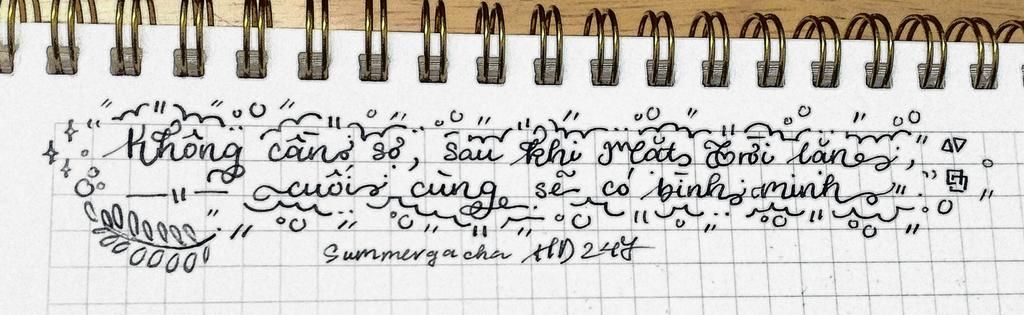 Không cần sợ, sau khi Mặt Trời lặn,
cuối cùng sẽ có bình minh
Summergacha HD24Y